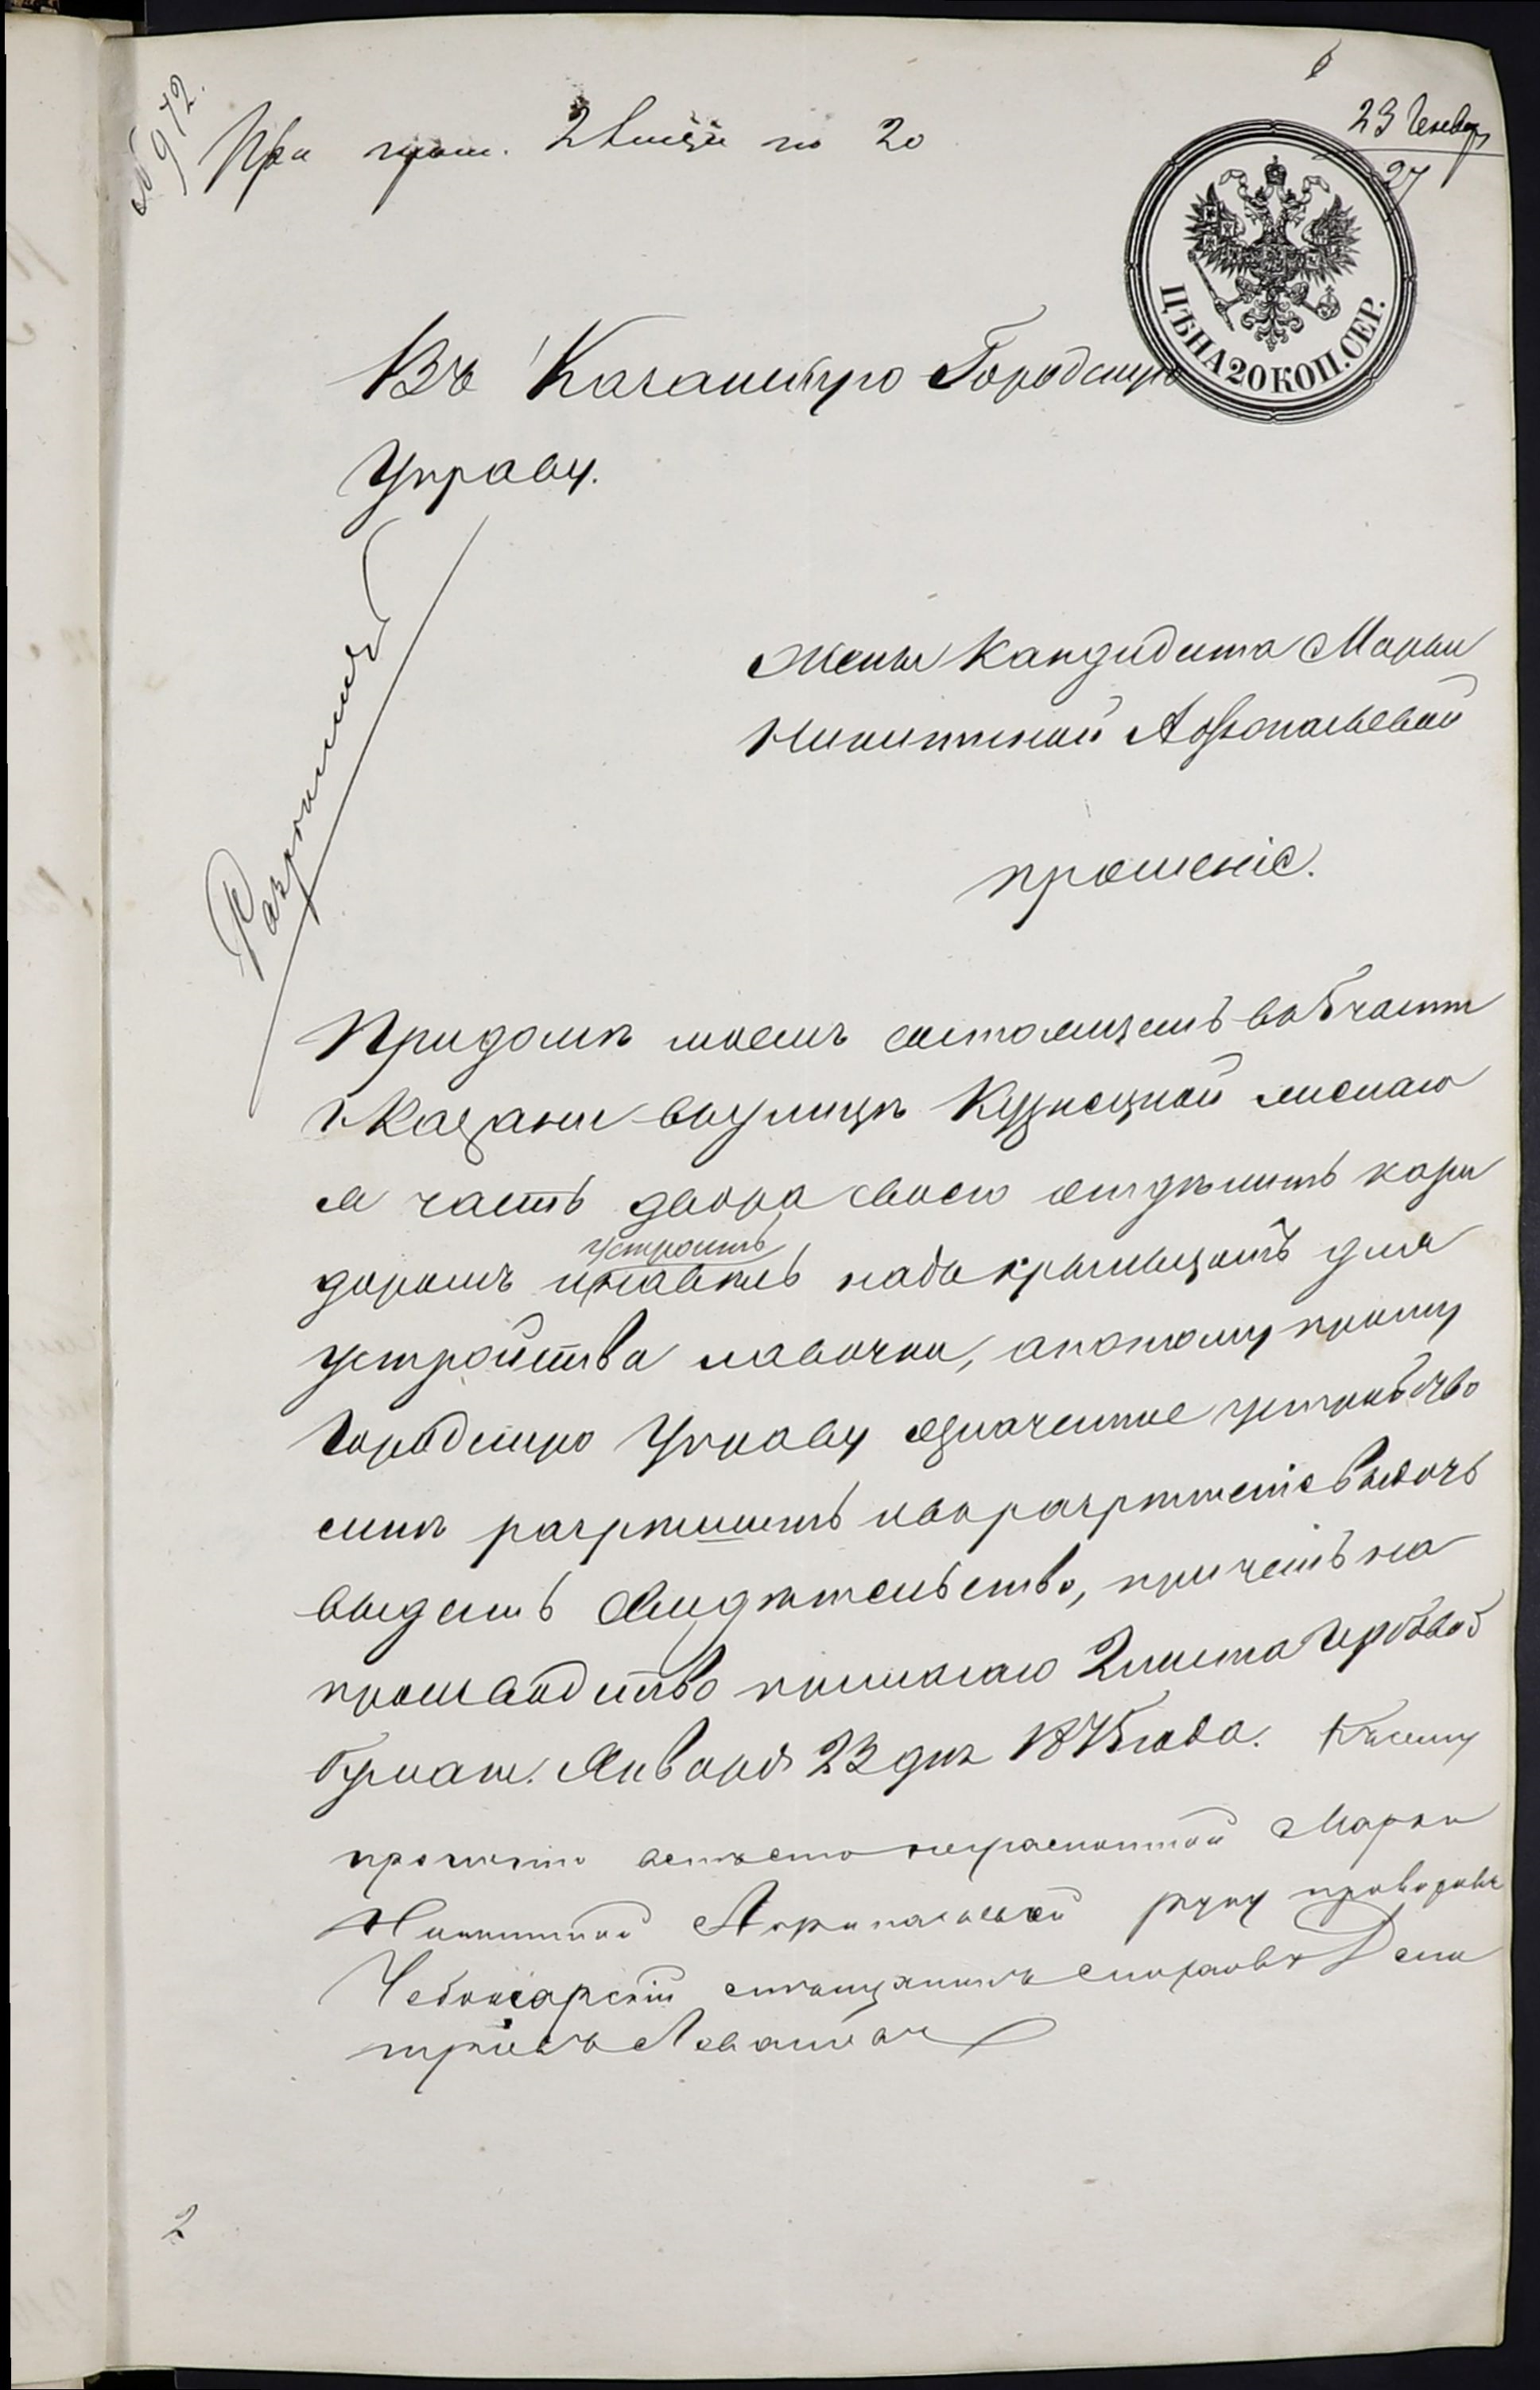 № 972.
При прош. 2 листа по 20
23 Генвар
27
ЦѢНА 20 КОП. СЕР.
Въ Казанскую Городскую
Управу.
Разрѣшить
Жены Кандидата Марьи
Никитиной Афонасьевой
прошеніе.
При домѣ моемъ состоящемъ въ 5 части
г Казани въ улицѣ Кузнецкой желаю
я часть двора своего отдѣлить кори
доромъ и устроить
надъ крыльцомъ для
устройства лавочки, а потому прошу
Городскую Управу означенное устройство
мнѣ разрѣшить и въ разрѣшеніе
выдать Свидѣтельство, при чемъ на
производство прилагаю 2 листа Гербовой
бумаги. Января 23 дня 1875 года. Къ сему
прошенію вмѣсто неграмотной Марьи
Никитиной Афонасьевой руку
Чебоксарскій мѣщанинъ Дми
тріевъ
2